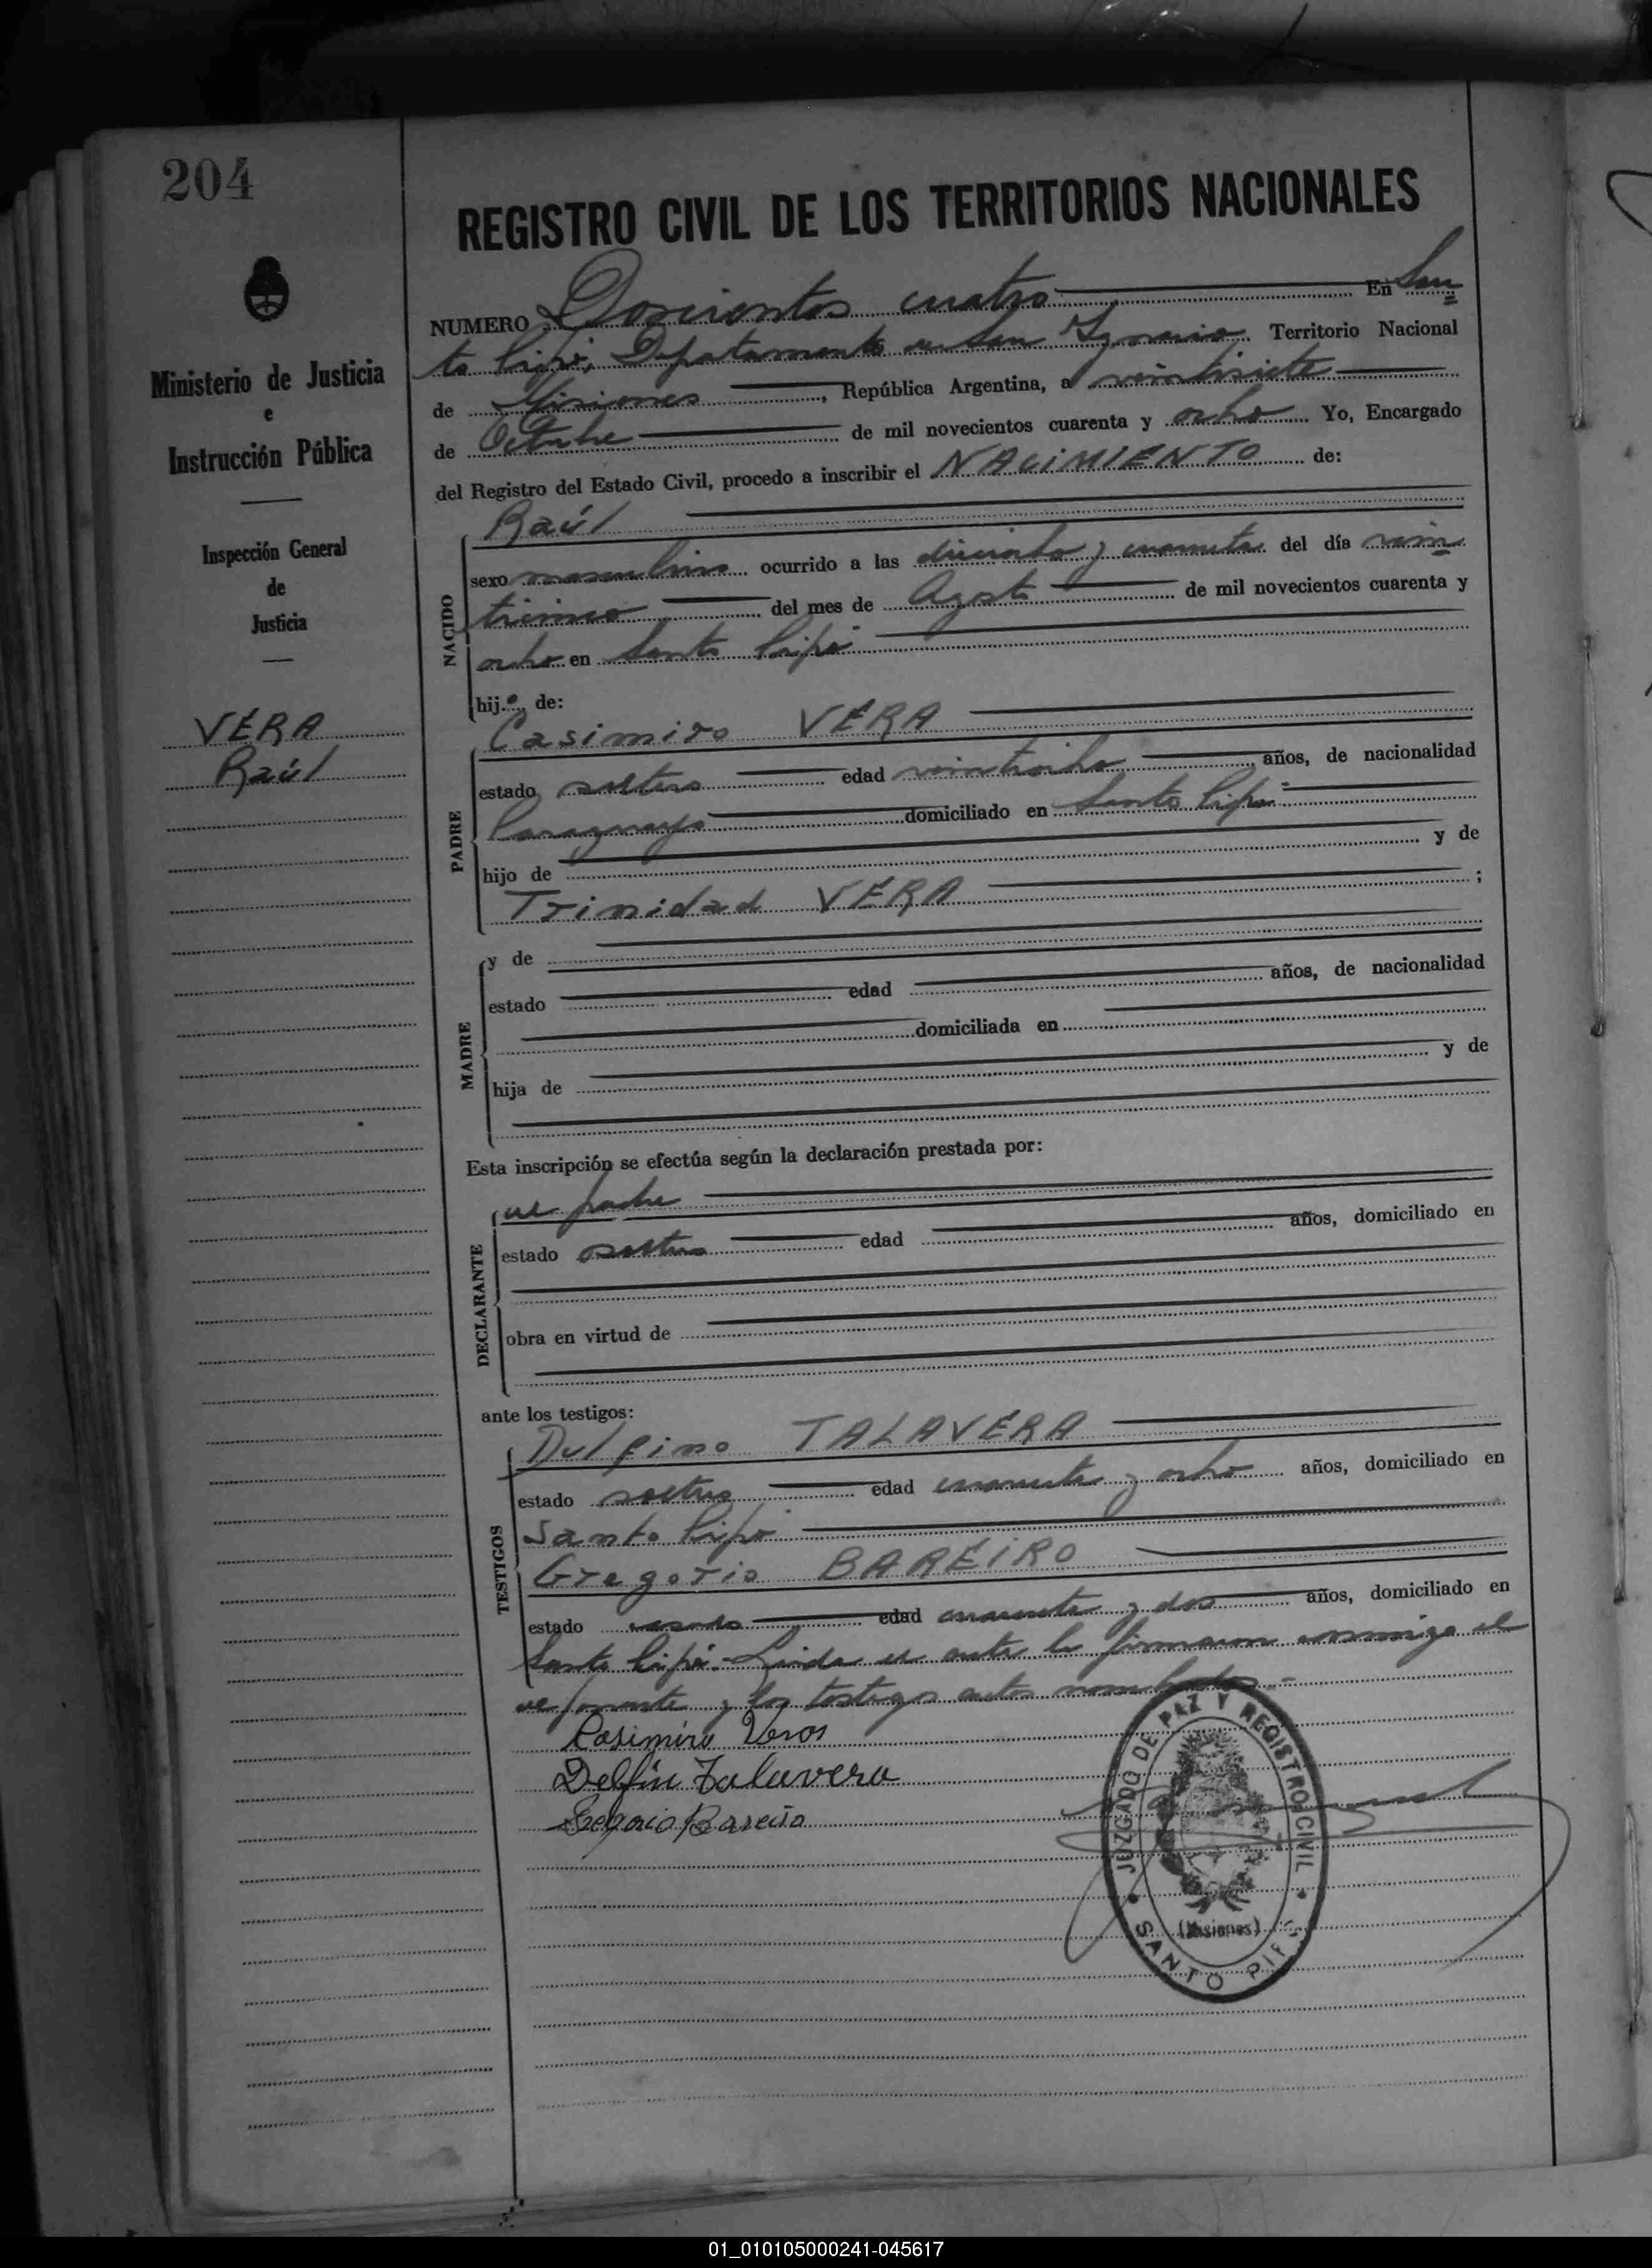 204
REGISTRO CIVIL DE LOS TERRITORIOS NACIONALES
Ministerio de Justicia
e
Instrucción Pública
Inspección General
de
Justicia
VERA
Raúl
NUMERO Doscientos cuatro En San
to Pipó, Departamento de San Ignacio Territorio Nacional
de Misiones, República Argentina, a veintisiete
de Octubre de mil novecientos cuarenta y ocho Yo, Encargado
del Registro del Estado Civil, procedo a inscribir el NACIMIENTO de:
NACIDO
Raúl
sexo masculino ocurrido a las dieciocho y cuarenta del día vein
ticinco del mes de Agosto de mil novecientos cuarenta y
ocho en Santo Pipó
hijo de:
PADRE
Casimiro VERA
estado soltero edad veintiocho años, de nacionalidad
Paraguayo domiciliado en Santo Pipó
hijo de y de
Trinidad VERA ;
MADRE
y de
estado edad años, de nacionalidad
domiciliada en
hija de y de
Esta inscripción se efectúa según la declaración prestada por:
DECLARANTE
el padre
estado soltero edad años, domiciliado en
obra en virtud de
ante los testigos:
TESTIGOS
Dulfino TALAVERA
estado soltero edad cuarenta y ocho años, domiciliado en
Santo Pipó
Gregorio BAREIRO
estado casado edad cuarenta y dos años, domiciliado en
Santo Pipó.- Leída el acta la firmaron conmigo el
y los testigos antes nombrados.-
Casimiro Veros
Delfin Talavera
Bareiro
JUZGADO DE PAZ Y REGISTRO CIVIL
(Misiones)
SANTO PIPÓ
01_010105000241-045617